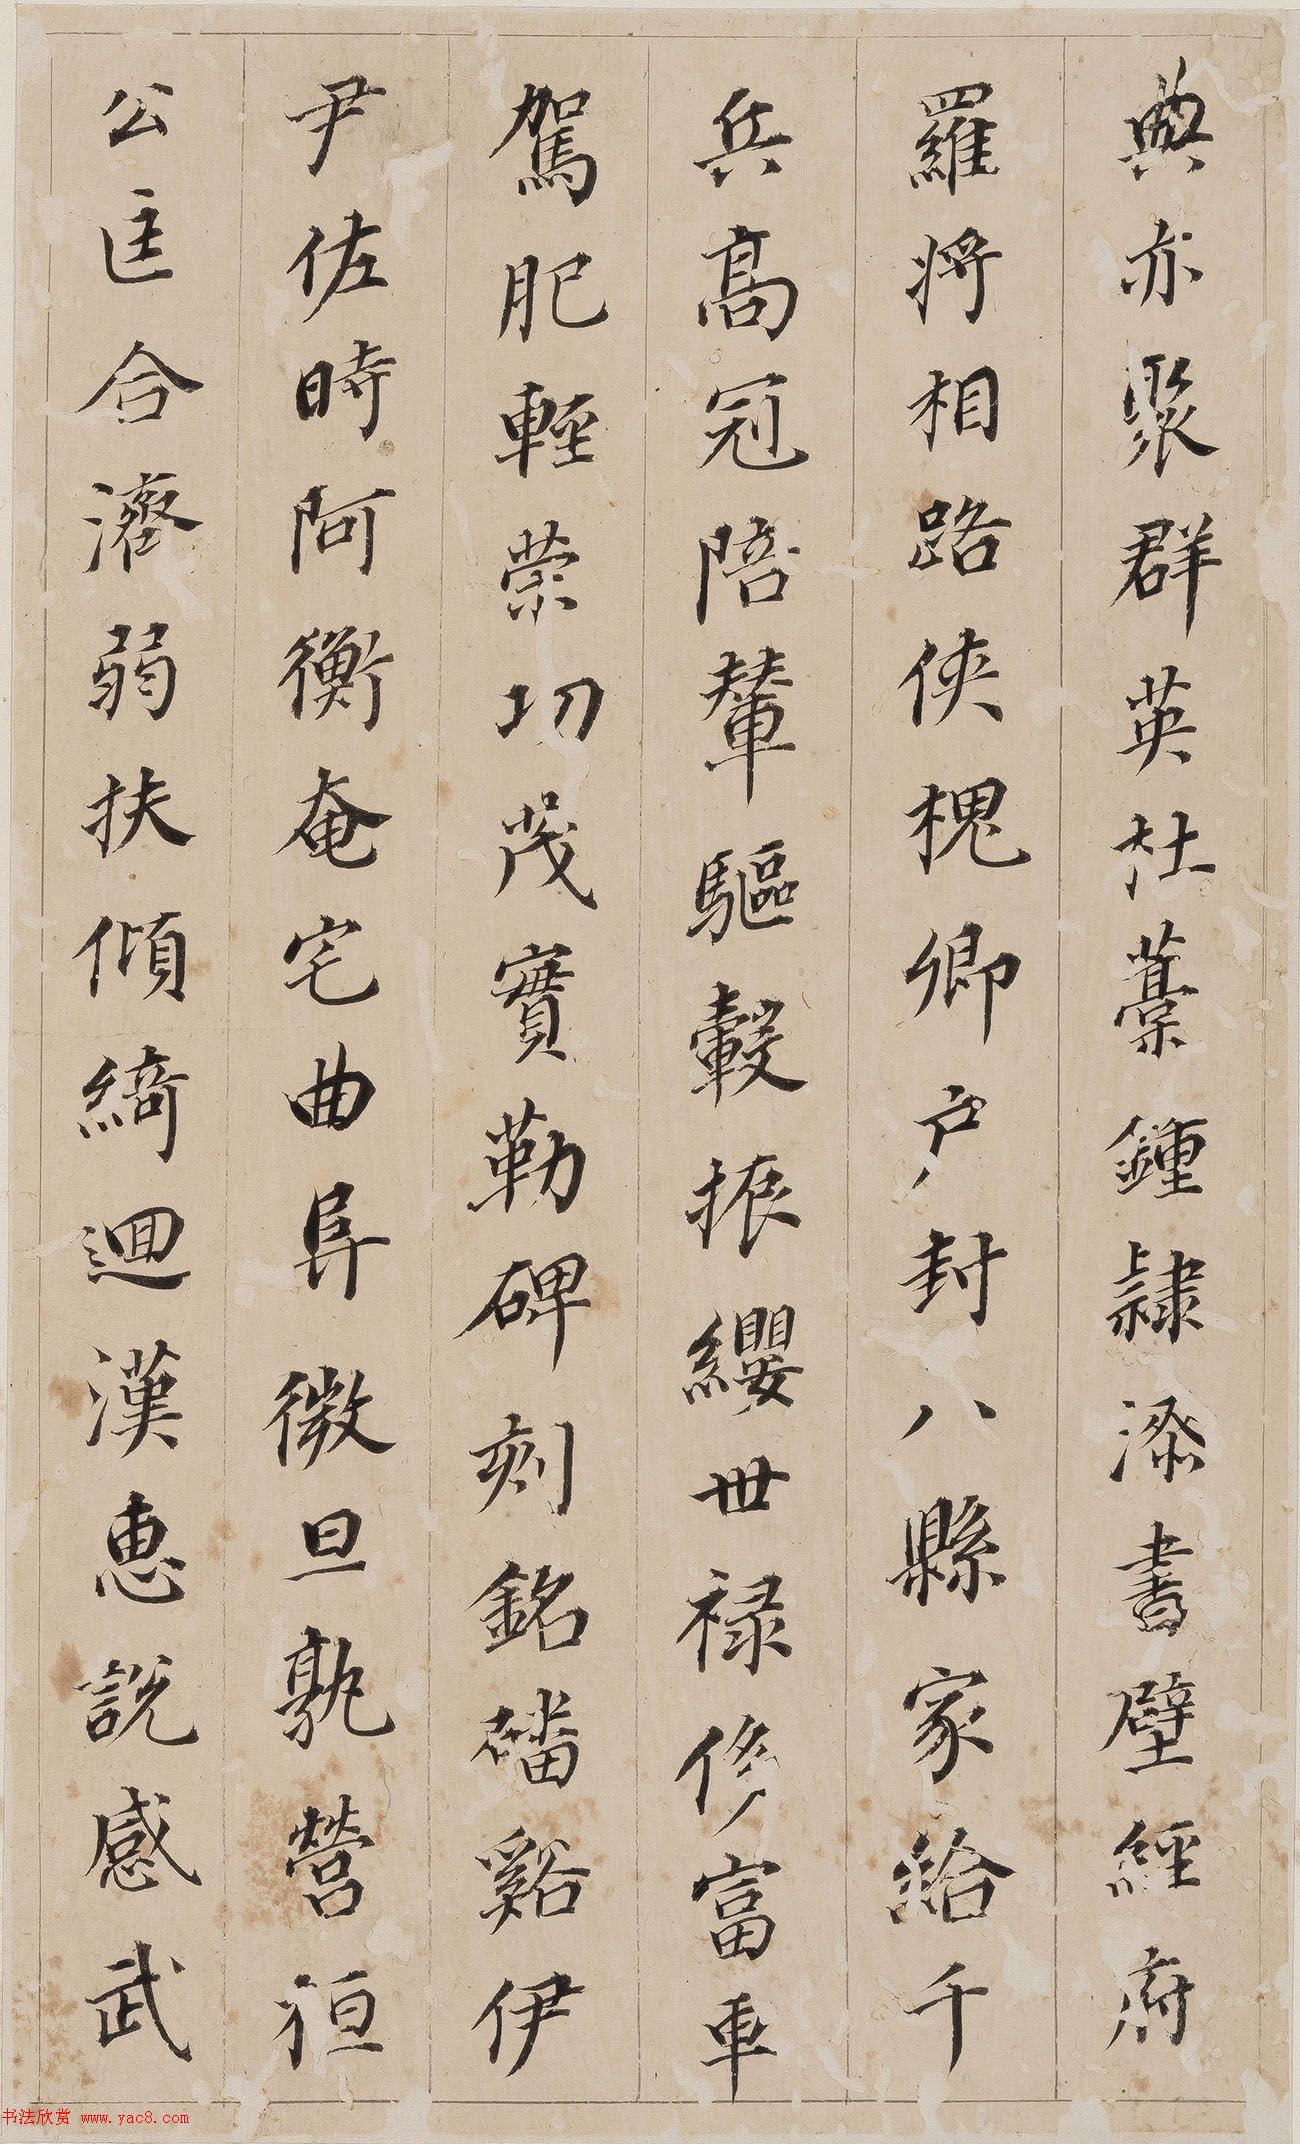 典亦聚群英杜藁鍾隸漆書壁經府
羅將相路俠槐卿户封八縣家給千
兵高冠陪輦驅轂振纓世禄侈富車
駕肥輕策功茂實勒碑刻銘磻谿伊
尹佐時阿衡奄宅曲阜微旦孰營桓
公匡合濟弱扶傾綺迴漢惠説感武
书法欣赏 www.yac8.com